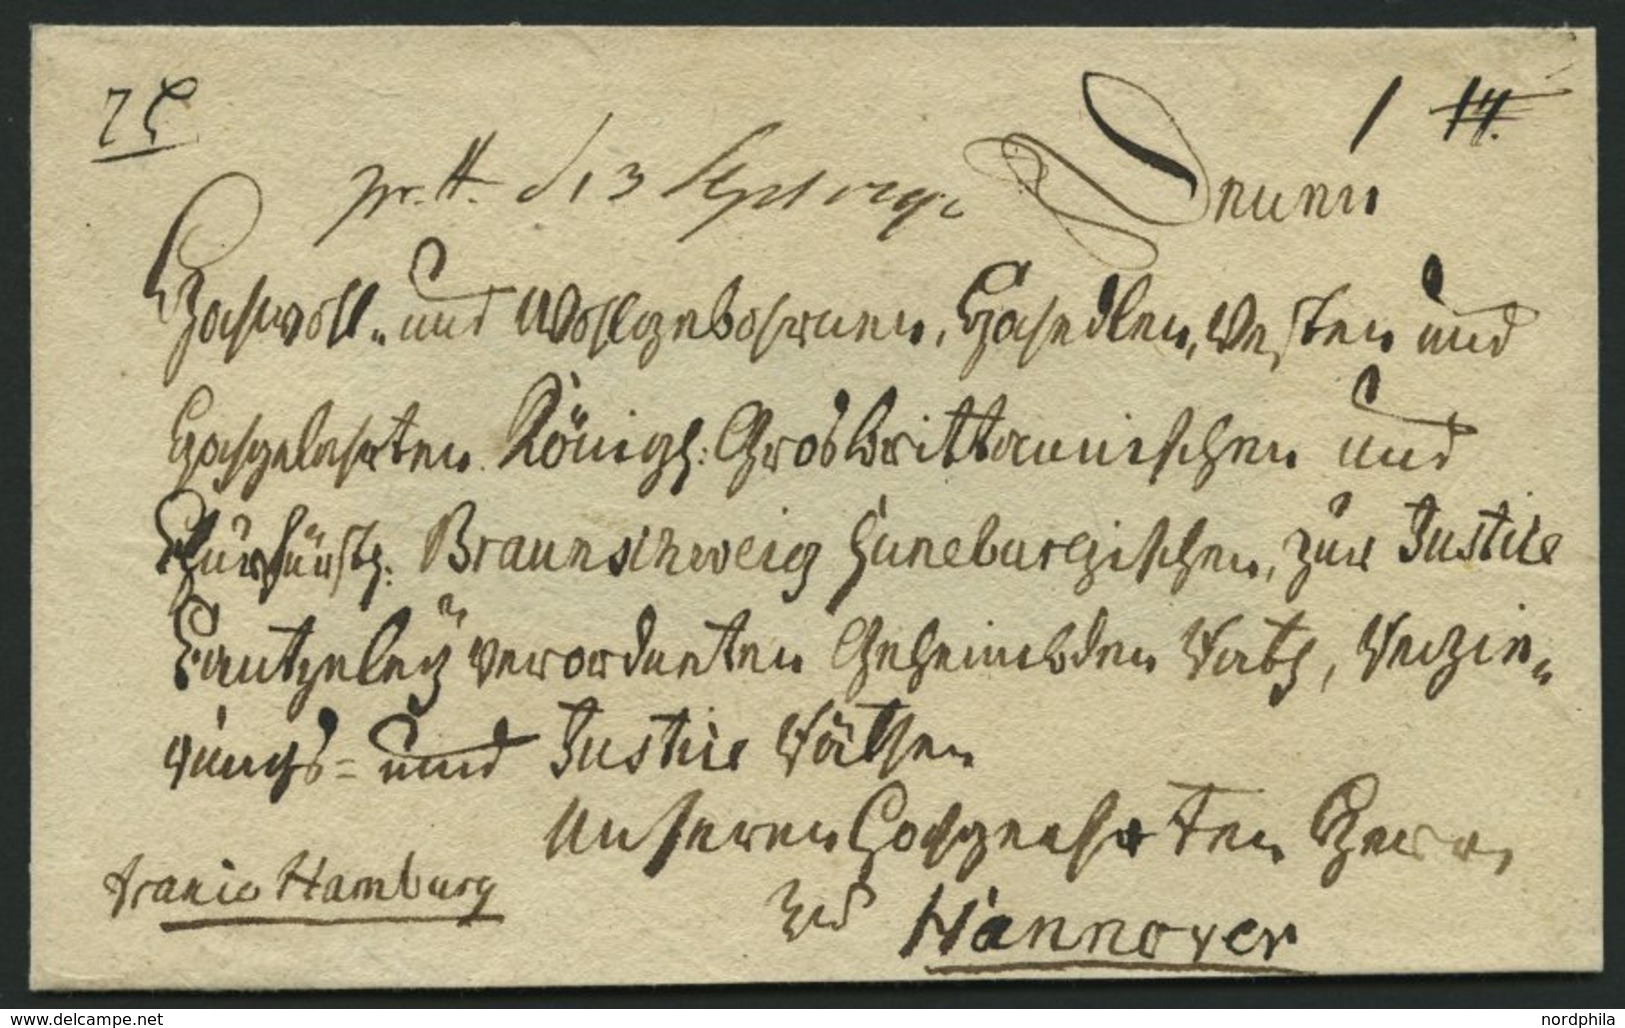 Denen
Hochwoll- und Wohlgebohrnen, Hochedlen, Vesten und
Hochgelahrten Königl: Grosbrittannischen und
Churfürstl: Braunschweig Lüneburgischen, zur Justice
Cantzeley verordneten Geheimbden Rath, Regie-
rungs- und Justice Räthen
Unseren Hochgeehrten Herrn
zu Hannover
franco Hamburg
www.delcampe.net
nordphila